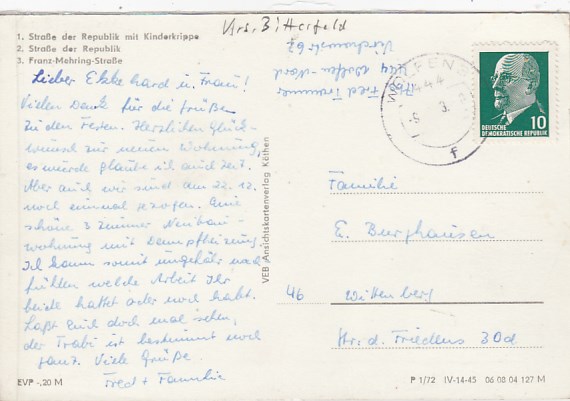 Krs. Bitterfeld
1. Straße der Republik mit Kinderkrippe
2. Straße der Republik
3. Franz-Mehring-Straße
Lieber Ekkehard u. Frau!
Vielen Dank für die Grüße
zu den Festen. Herzlichen Glück-
wunsch zur neuen Wohnung,
es wurde glaube ich auch Zeit.
Aber auch wir sind am 22.12.
noch einmal gezogen. Eine
schöne 3 Zimmer Neubau-
wohnung mit Dampfheizung.
Ich kann somit ungefähr nach
fühlen welche Arbeit Ihr
beide hattet oder noch habt.
Laßt Euch doch mal sehen,
der Trabi ist bestimmt noch
ganz. Viele Grüße
Fred + Familie
EVP -,20 M
VEB Ansichtskartenverlag Köthen
Abs. Fred
444 Wolfen-Nord
WOLFEN
444
f
10
DEUTSCHE
DEMOKRATISCHE REPUBLIK
Familie
E. Burghausen
46 Wittenberg
Str. d. Friedens 30d
P 1/72 IV-14-45 06 08 04 127 M